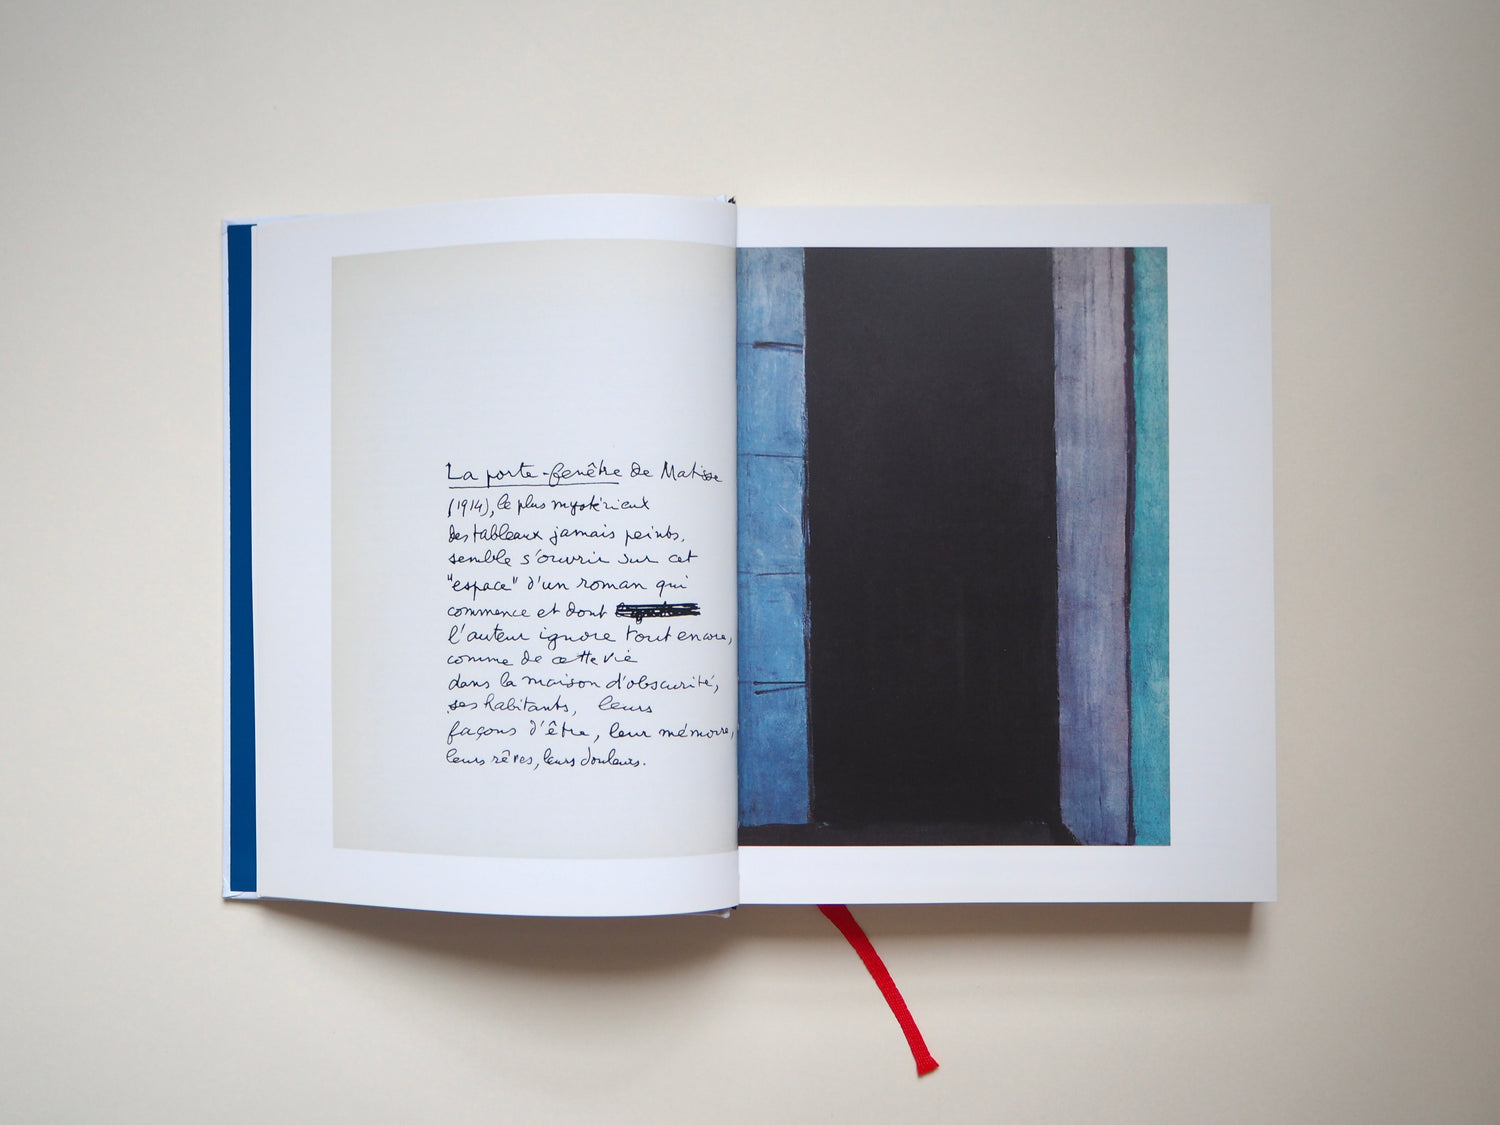 La porte-fenêtre de Matisse
(1914), le plus mystérieux
des tableaux jamais peints,
semble s'ouvrir sur cet
"espace" d'un roman qui
commence et dont
l'auteur ignore tout encore,
comme de cette vie
dans la maison d'obscurité,
ses habitants, leurs
façons d'être, leur mémoire,
leurs rêves, leurs douleurs.